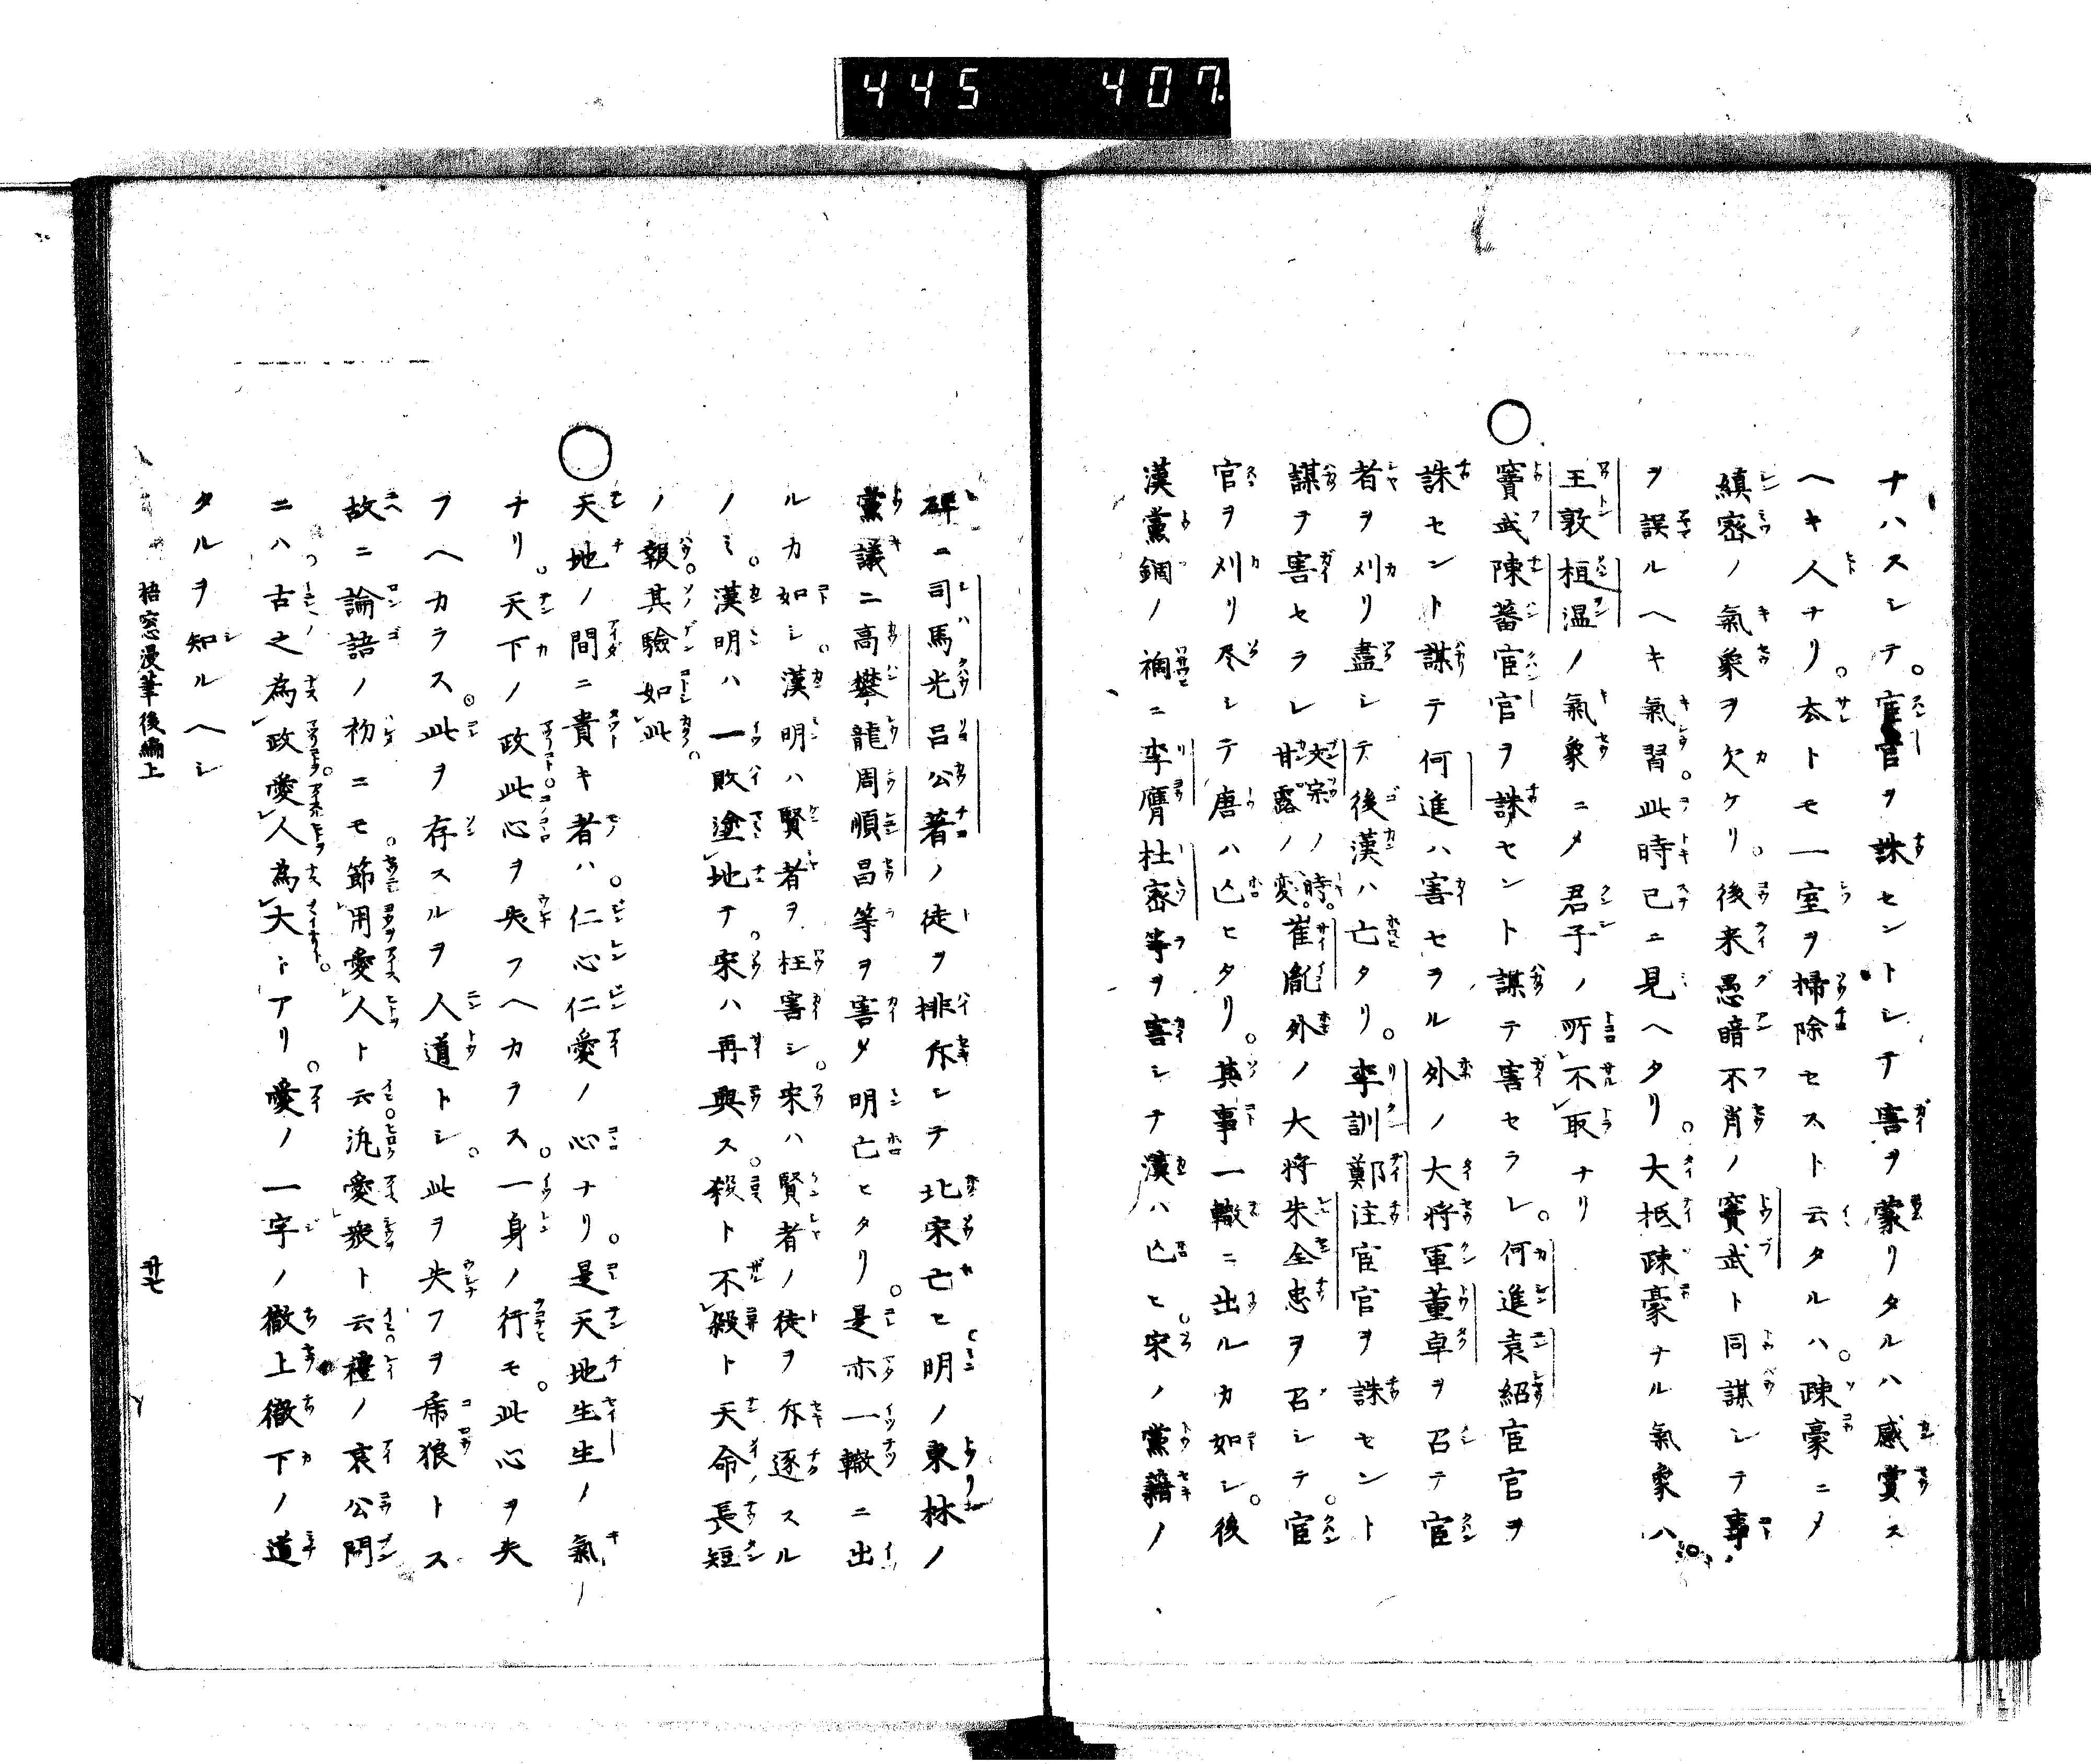 445 407.
ナハスシテ。宦官ヲ誅セントシテ害ヲ蒙リタルハ感賞ス
ヘキ人ナリ。去トモ一室ヲ掃除セスト云タルハ。疎豪ニメ
縝密ノ氣象ヲ欠ケリ。後来愚暗不肖ノ竇武ト同謀シテ事
ヲ誤ルヘキ氣習。此時已ニ見ヘタリ。大抵疎豪ナル氣象ハ
王敦桓温ノ氣象ニメ君子ノ所不取ナリ
○竇武陳蕃宦官ヲ誅セント謀テ害セラレ。何進袁紹宦官ヲ
誅セント謀テ何進ハ害セヲル外ノ大将軍董卓ヲ召テ宦
者ヲ刈リ盡シテ後漢ハ亡タリ。李訓鄭注宦官ヲ誅セント
謀テ害セラレ文宗ノ時。甘露ノ変。崔胤外ノ大将朱全忠ヲ召シテ。宦
官ヲ刈リ尽シテ唐ハ亡ヒタリ。其事一轍ニ出ルカ如シ。後
漢黨錮ノ禍ニ李膺杜密等ヲ害シテ漢ハ亡ヒ。宋ノ黨籍ノ
碑ニ司馬光呂公著ノ徒ヲ排斥シテ北宋亡ヒ明ノ東林ノ
黨議ニ高攀龍周順昌等ヲ害メ明亡ヒタリ。是亦一轍ニ出
ルカ如シ。漢明ハ賢者ヲ枉害シ。宋ハ賢者ノ徒ヲ斥逐スル
ノミ。漢明ハ一敗塗地テ。宋ハ再興ス。殺ト不殺ト天命長短
ノ報。其驗如此。
○天地ノ間ニ貴キ者ハ。仁心仁愛ノ心ナリ。是天地生生ノ氣ノ
ナリ。天下ノ政此心ヲ失フヘカラス。一身ノ行モ。此心ヲ失
フヘカラス。此ヲ存スルヲ人道トシ。此ヲ失フヲ虎狼トス
故ニ論語ノ初ニモ。節用愛人ト云汎愛衆ト云。禮ノ哀公問
ニハ。古之為政愛人為大トアリ。愛ノ一字ノ徹上徹下ノ道
タルヲ知ルヘシ
梧窓漫筆後編上
廿七